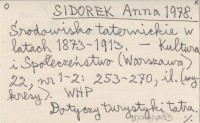 SIDOREK Anna 1978.
Środowisko taternickie w
latach 1873-1913. - Kultura
i Społeczeństwo (Warszawa)
22, nr 1-2: 253-270, il. (wy-
kresy). WHP
Dotyczy turystyki tatra.